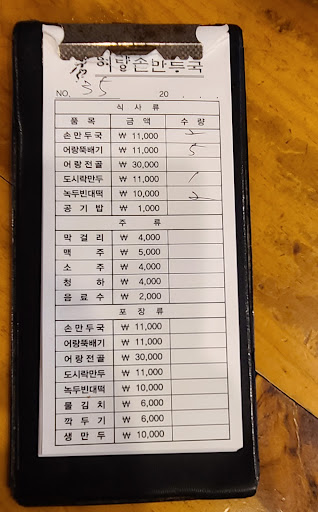 어랑손만두국
NO. 35 20 . . .
식 사 류
품 목 금 액 수 량
손 만 두 국 ₩ 11,000 2
어랑뚝배기 ₩ 11,000 5
어 랑 전 골 ₩ 30,000
도시락만두 ₩ 11,000 1
녹두빈대떡 ₩ 10,000 2
공 기 밥 ₩ 1,000
주 류
막 걸 리 ₩ 4,000
맥 주 ₩ 5,000
소 주 ₩ 4,000
청 하 ₩ 4,000
음 료 수 ₩ 2,000
포 장 류
손 만 두 국 ₩ 11,000
어랑뚝배기 ₩ 11,000
어 랑 전 골 ₩ 30,000
도시락만두 ₩ 11,000
녹두빈대떡 ₩ 10,000
물 김 치 ₩ 6,000
깍 두 기 ₩ 6,000
생 만 두 ₩ 10,000